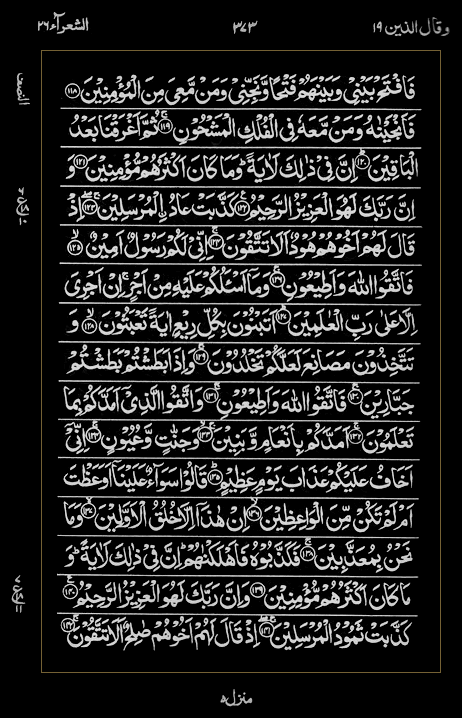 وقال الذين ١٩ ٣٧٣ الشعرآء ٢٦
فَافْتَحْ بَيْنِيْ وَبَيْنَهُمْ فَتْحًا وَّنَجِّنِيْ وَمَنْ مَّعِيَ مِنَ الْمُؤْمِنِيْنَ ﴿١١٨﴾
فَاَنْجَيْنٰهُ وَمَنْ مَّعَهٗ فِي الْفُلْكِ الْمَشْحُوْنِ ﴿١١٩﴾ ثُمَّ اَغْرَقْنَا بَعْدُ
الْبَاقِيْنَ ﴿١٢٠﴾ اِنَّ فِيْ ذٰلِكَ لَاٰيَةً وَمَا كَانَ اَكْثَرُهُمْ مُّؤْمِنِيْنَ ﴿١٢١﴾ وَ
اِنَّ رَبَّكَ لَهُوَ الْعَزِيْزُ الرَّحِيْمُ ﴿١٢٢﴾ كَذَّبَتْ عَادُ ۨالْمُرْسَلِيْنَ ﴿١٢٣﴾ اِذْ
قَالَ لَهُمْ اَخُوْهُمْ هُوْدٌ اَلَا تَتَّقُوْنَ ﴿١٢٤﴾ اِنِّيْ لَكُمْ رَسُوْلٌ اَمِيْنٌ ﴿١٢٥﴾
فَاتَّقُوا اللّٰهَ وَاَطِيْعُوْنِ ﴿١٢٦﴾ وَمَا اَسْـَٔلُكُمْ عَلَيْهِ مِنْ اَجْرٍ اِنْ اَجْرِيَ
اِلَّا عَلٰى رَبِّ الْعٰلَمِيْنَ ﴿١٢٧﴾ اَتَبْنُوْنَ بِكُلِّ رِيْعٍ اٰيَةً تَعْبَثُوْنَ ﴿١٢٨﴾ وَ
تَتَّخِذُوْنَ مَصَانِعَ لَعَلَّكُمْ تَخْلُدُوْنَ ﴿١٢٩﴾ وَاِذَا بَطَشْتُمْ بَطَشْتُمْ
جَبَّارِيْنَ ﴿١٣٠﴾ فَاتَّقُوا اللّٰهَ وَاَطِيْعُوْنِ ﴿١٣١﴾ وَاتَّقُوا الَّذِيْٓ اَمَدَّكُمْ بِمَا
تَعْلَمُوْنَ ﴿١٣٢﴾ اَمَدَّكُمْ بِاَنْعَامٍ وَّبَنِيْنَ ﴿١٣٣﴾ وَجَنّٰتٍ وَّعُيُوْنٍ ﴿١٣٤﴾ اِنِّيْٓ
اَخَافُ عَلَيْكُمْ عَذَابَ يَوْمٍ عَظِيْمٍ ﴿١٣٥﴾ قَالُوْا سَوَآءٌ عَلَيْنَآ اَوَعَظْتَ
اَمْ لَمْ تَكُنْ مِّنَ الْوَاعِظِيْنَ ﴿١٣٦﴾ اِنْ هٰذَآ اِلَّا خُلُقُ الْاَوَّلِيْنَ ﴿١٣٧﴾ وَمَا
نَحْنُ بِمُعَذَّبِيْنَ ﴿١٣٨﴾ فَكَذَّبُوْهُ فَاَهْلَكْنٰهُمْ اِنَّ فِيْ ذٰلِكَ لَاٰيَةً وَ
مَا كَانَ اَكْثَرُهُمْ مُّؤْمِنِيْنَ ﴿١٣٩﴾ وَاِنَّ رَبَّكَ لَهُوَ الْعَزِيْزُ الرَّحِيْمُ ﴿١٤٠﴾
كَذَّبَتْ ثَمُوْدُ الْمُرْسَلِيْنَ ﴿١٤١﴾ اِذْ قَالَ لَهُمْ اَخُوْهُمْ صٰلِحٌ اَلَا تَتَّقُوْنَ ﴿١٤٢﴾
منزل ٥